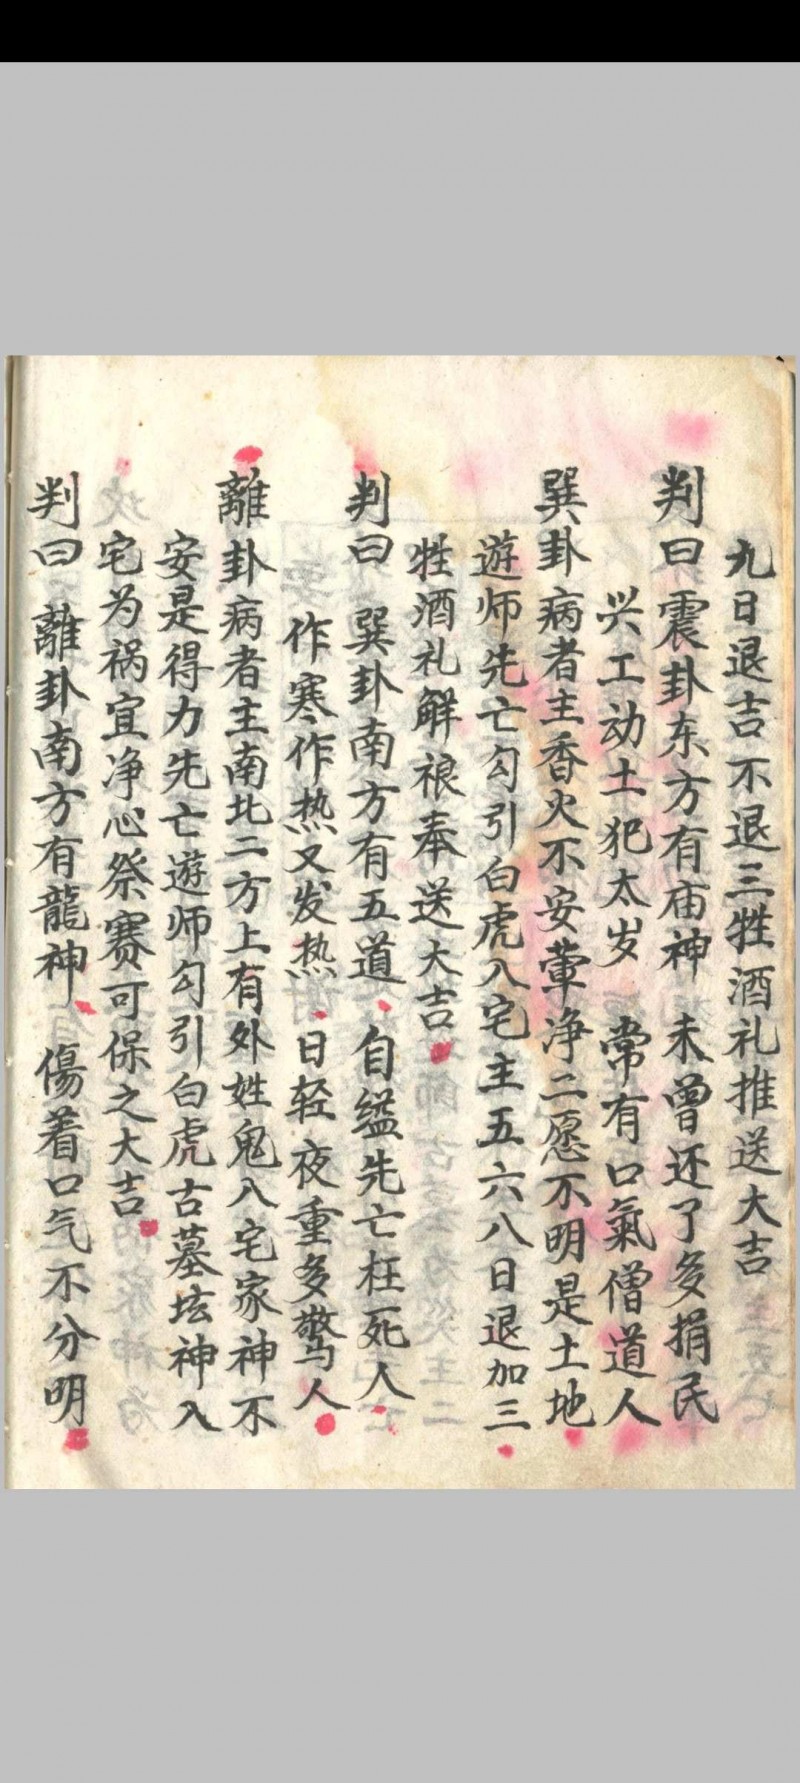 九日退吉不退三牲酒礼推送大吉
判曰震卦东方有庙神 未曾还了多捐民
兴工动土犯太岁 常有口氣僧道人
巽卦病者主香火不安葷净二愿不明是土地
遊师先亡勾引白虎入宅主五六八日退加三
牲酒礼解禄奉送大吉
判曰 巽卦南方有五道 自缢先亡枉死人
作寒作热又发热 日轻夜重多驚人
離卦病者主南北二方上有外姓鬼入宅家神不
安是得力先亡遊师勾引白虎古墓坛神入
宅为祸宜净心祭赛可保之大吉
判曰 離卦南方有龍神 傷着口气不分明